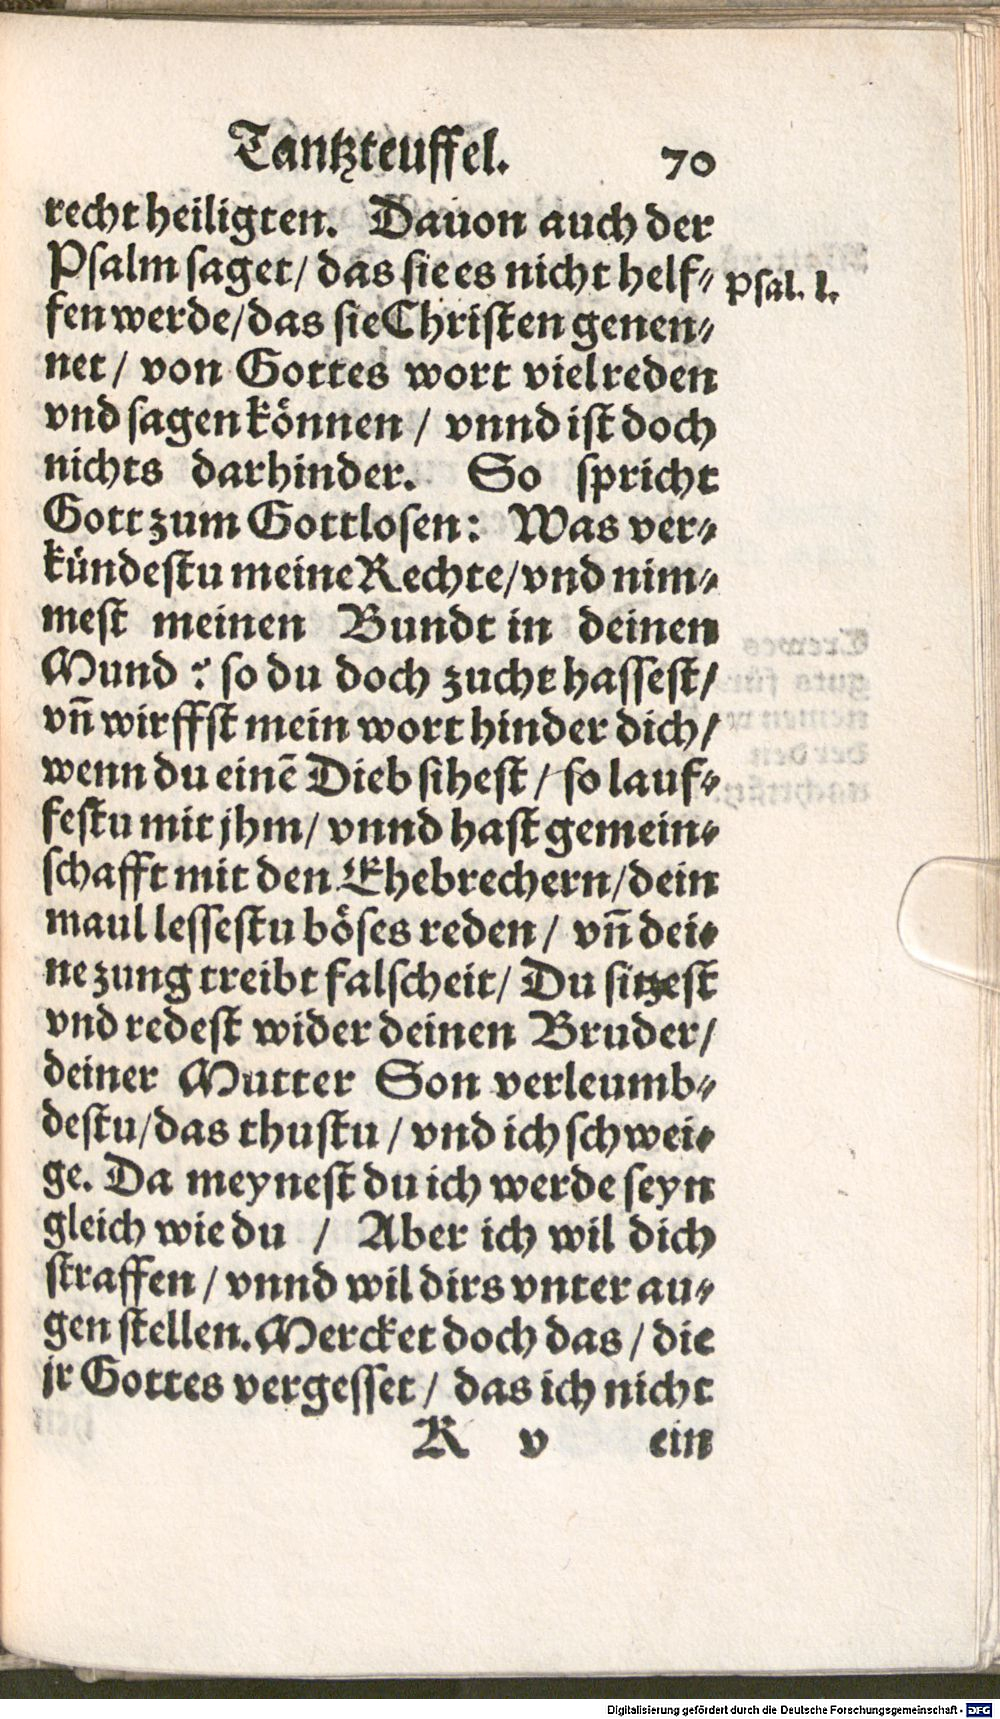 Tantzteuffel. 70
recht heiligten. Dauon auch der
Psalm saget/ das sie es nicht helf⸗ Psal. l.
fen werde/das sie Christen genen⸗
net/ von Gottes wort viel reden
vnd sagen können/ vnnd ist doch
nichts darhinder. So spricht
Gott zum Gottlosen: Was ver⸗
kündestu meine Rechte/vnd nim⸗
mest meinen Bundt in deinen
Mund? so du doch zucht hassest/
vñ wirffst mein wort hinder dich/
wenn du einē Dieb sihest/ so lauf⸗
festu mit jhm/ vnnd hast gemein⸗
schafft mit den Ehebrechern/dein
maul lessestu böses reden/ vñ dei⸗
ne zung treibt falscheit/ Du sitzest
vnd redest wider deinen Bruder/
deiner Mutter Son verleumb⸗
destu/das thustu/ vnd ich schwei⸗
ge. Da meynest du ich werde seyn
gleich wie du / Aber ich wil dich
straffen/ vnnd wil dirs vnter au⸗
gen stellen. Mercket doch das/ die
jr Gottes vergesset/ das ich nicht
K v ein
Digitalisierung gefördert durch die Deutsche Forschungsgemeinschaft - DFG